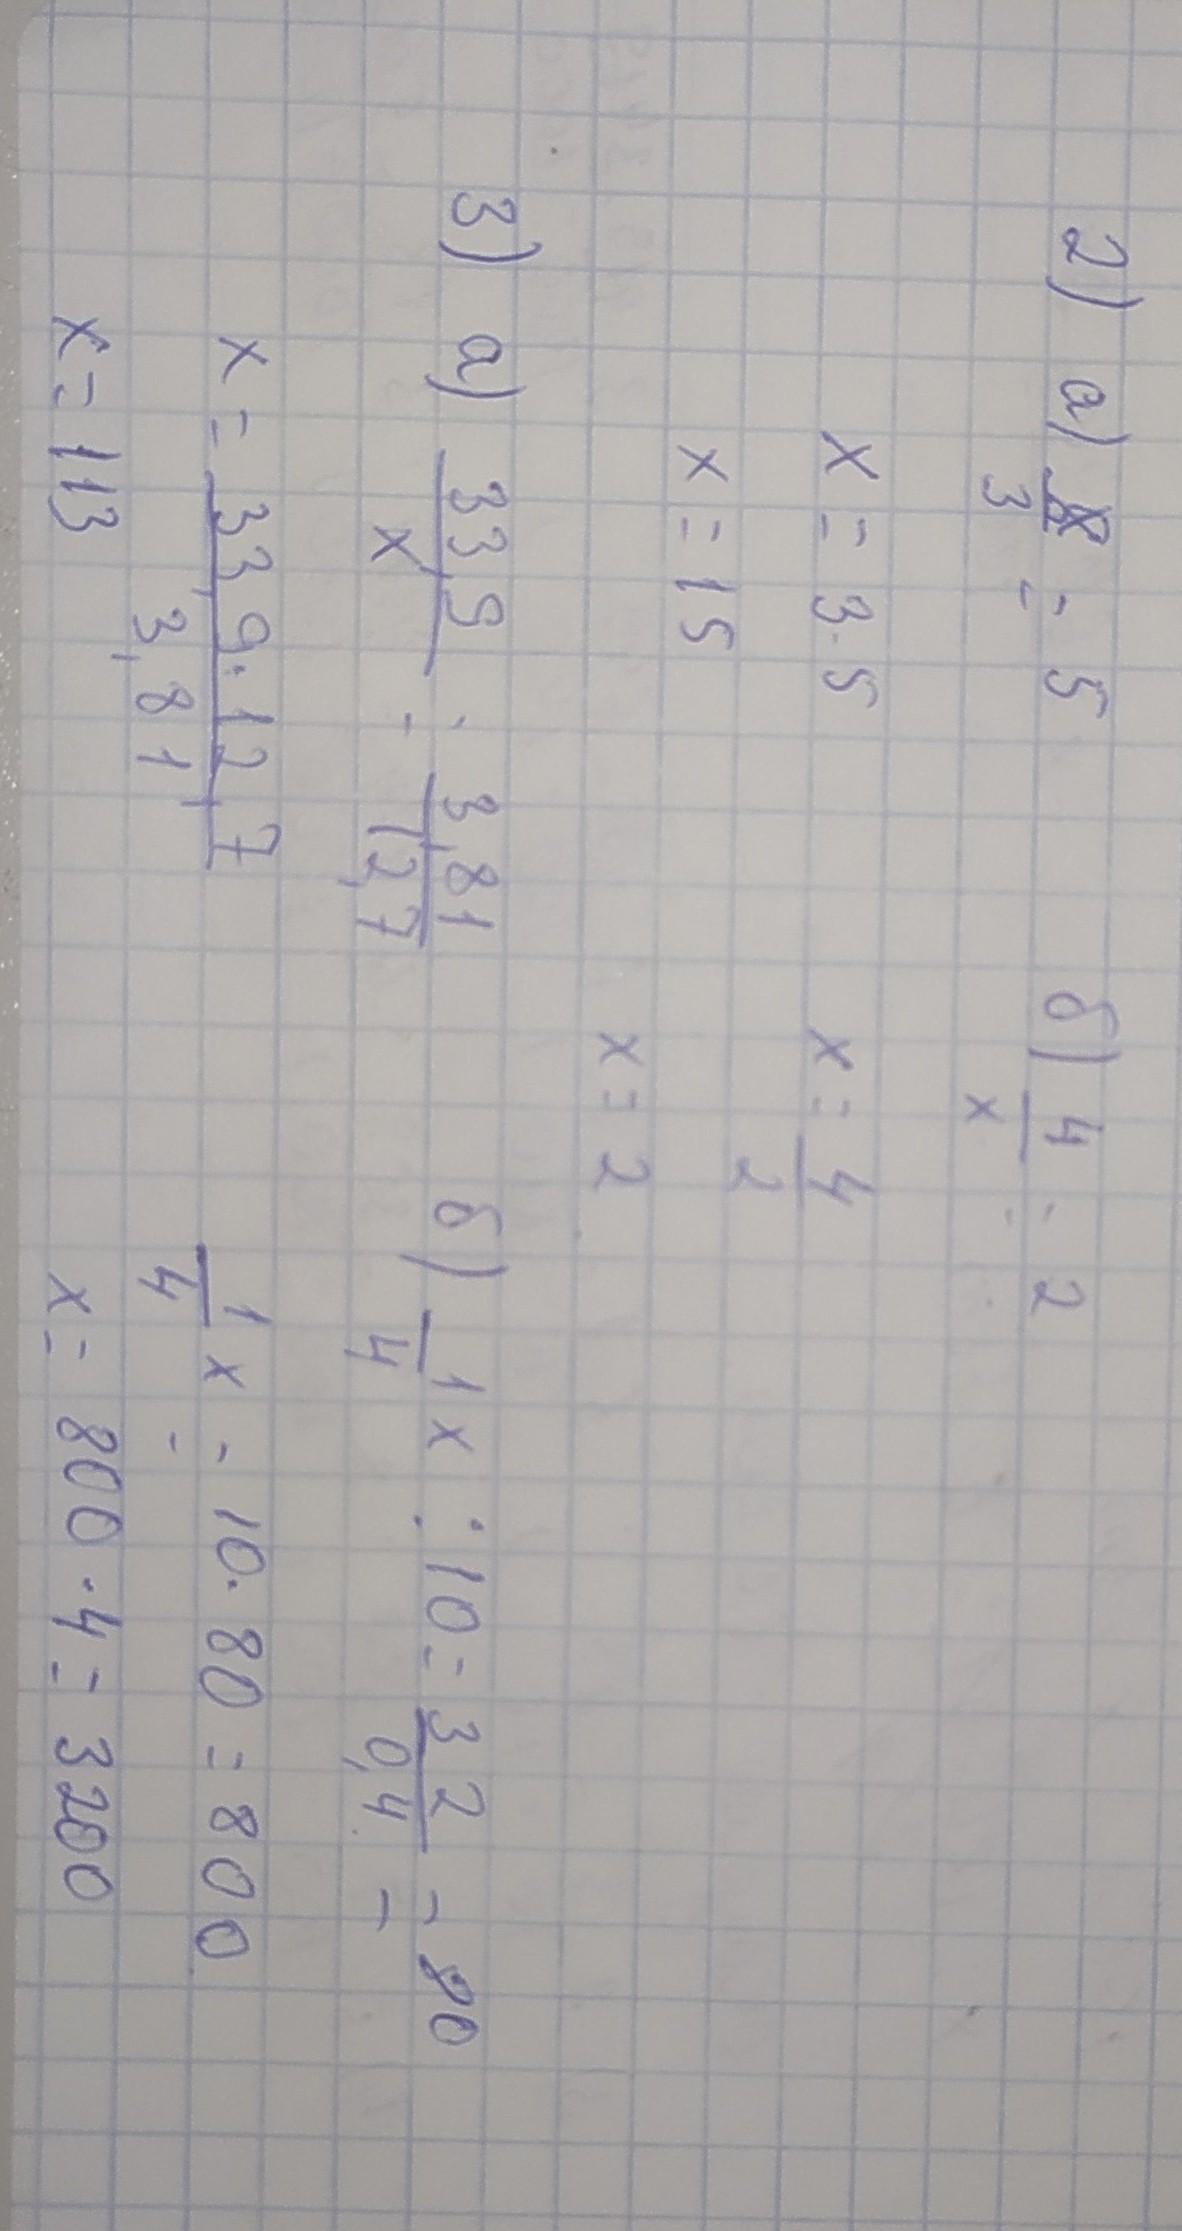 2) а) x/3 = 5
x = 3·5
x = 15
б) 4/x = 2
x = 4/2
x = 2
3) а) 33,9/x = 3,81/12,7
x = 33,9·12,7/3,81
x = 113
б) 1/4 x : 10 = 32/0,4 = 80
1/4 x = 10·80 = 800
x = 800·4 = 3200